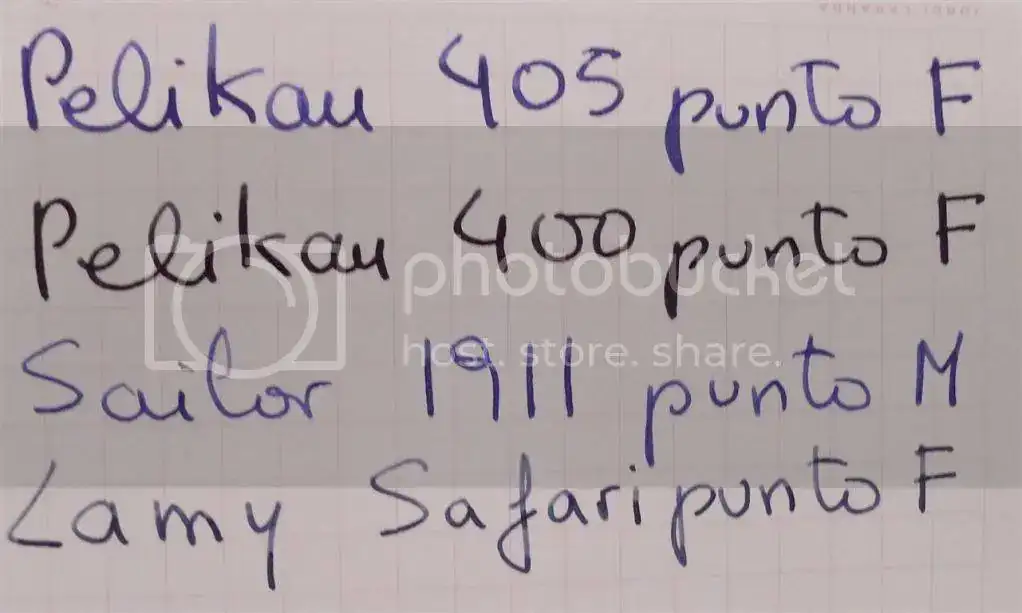 Pelikan 405 punto F
Pelikan 400 punto F
photobucket
host. store. share.
Sailor 1911 punto M
Lamy Safari punto F